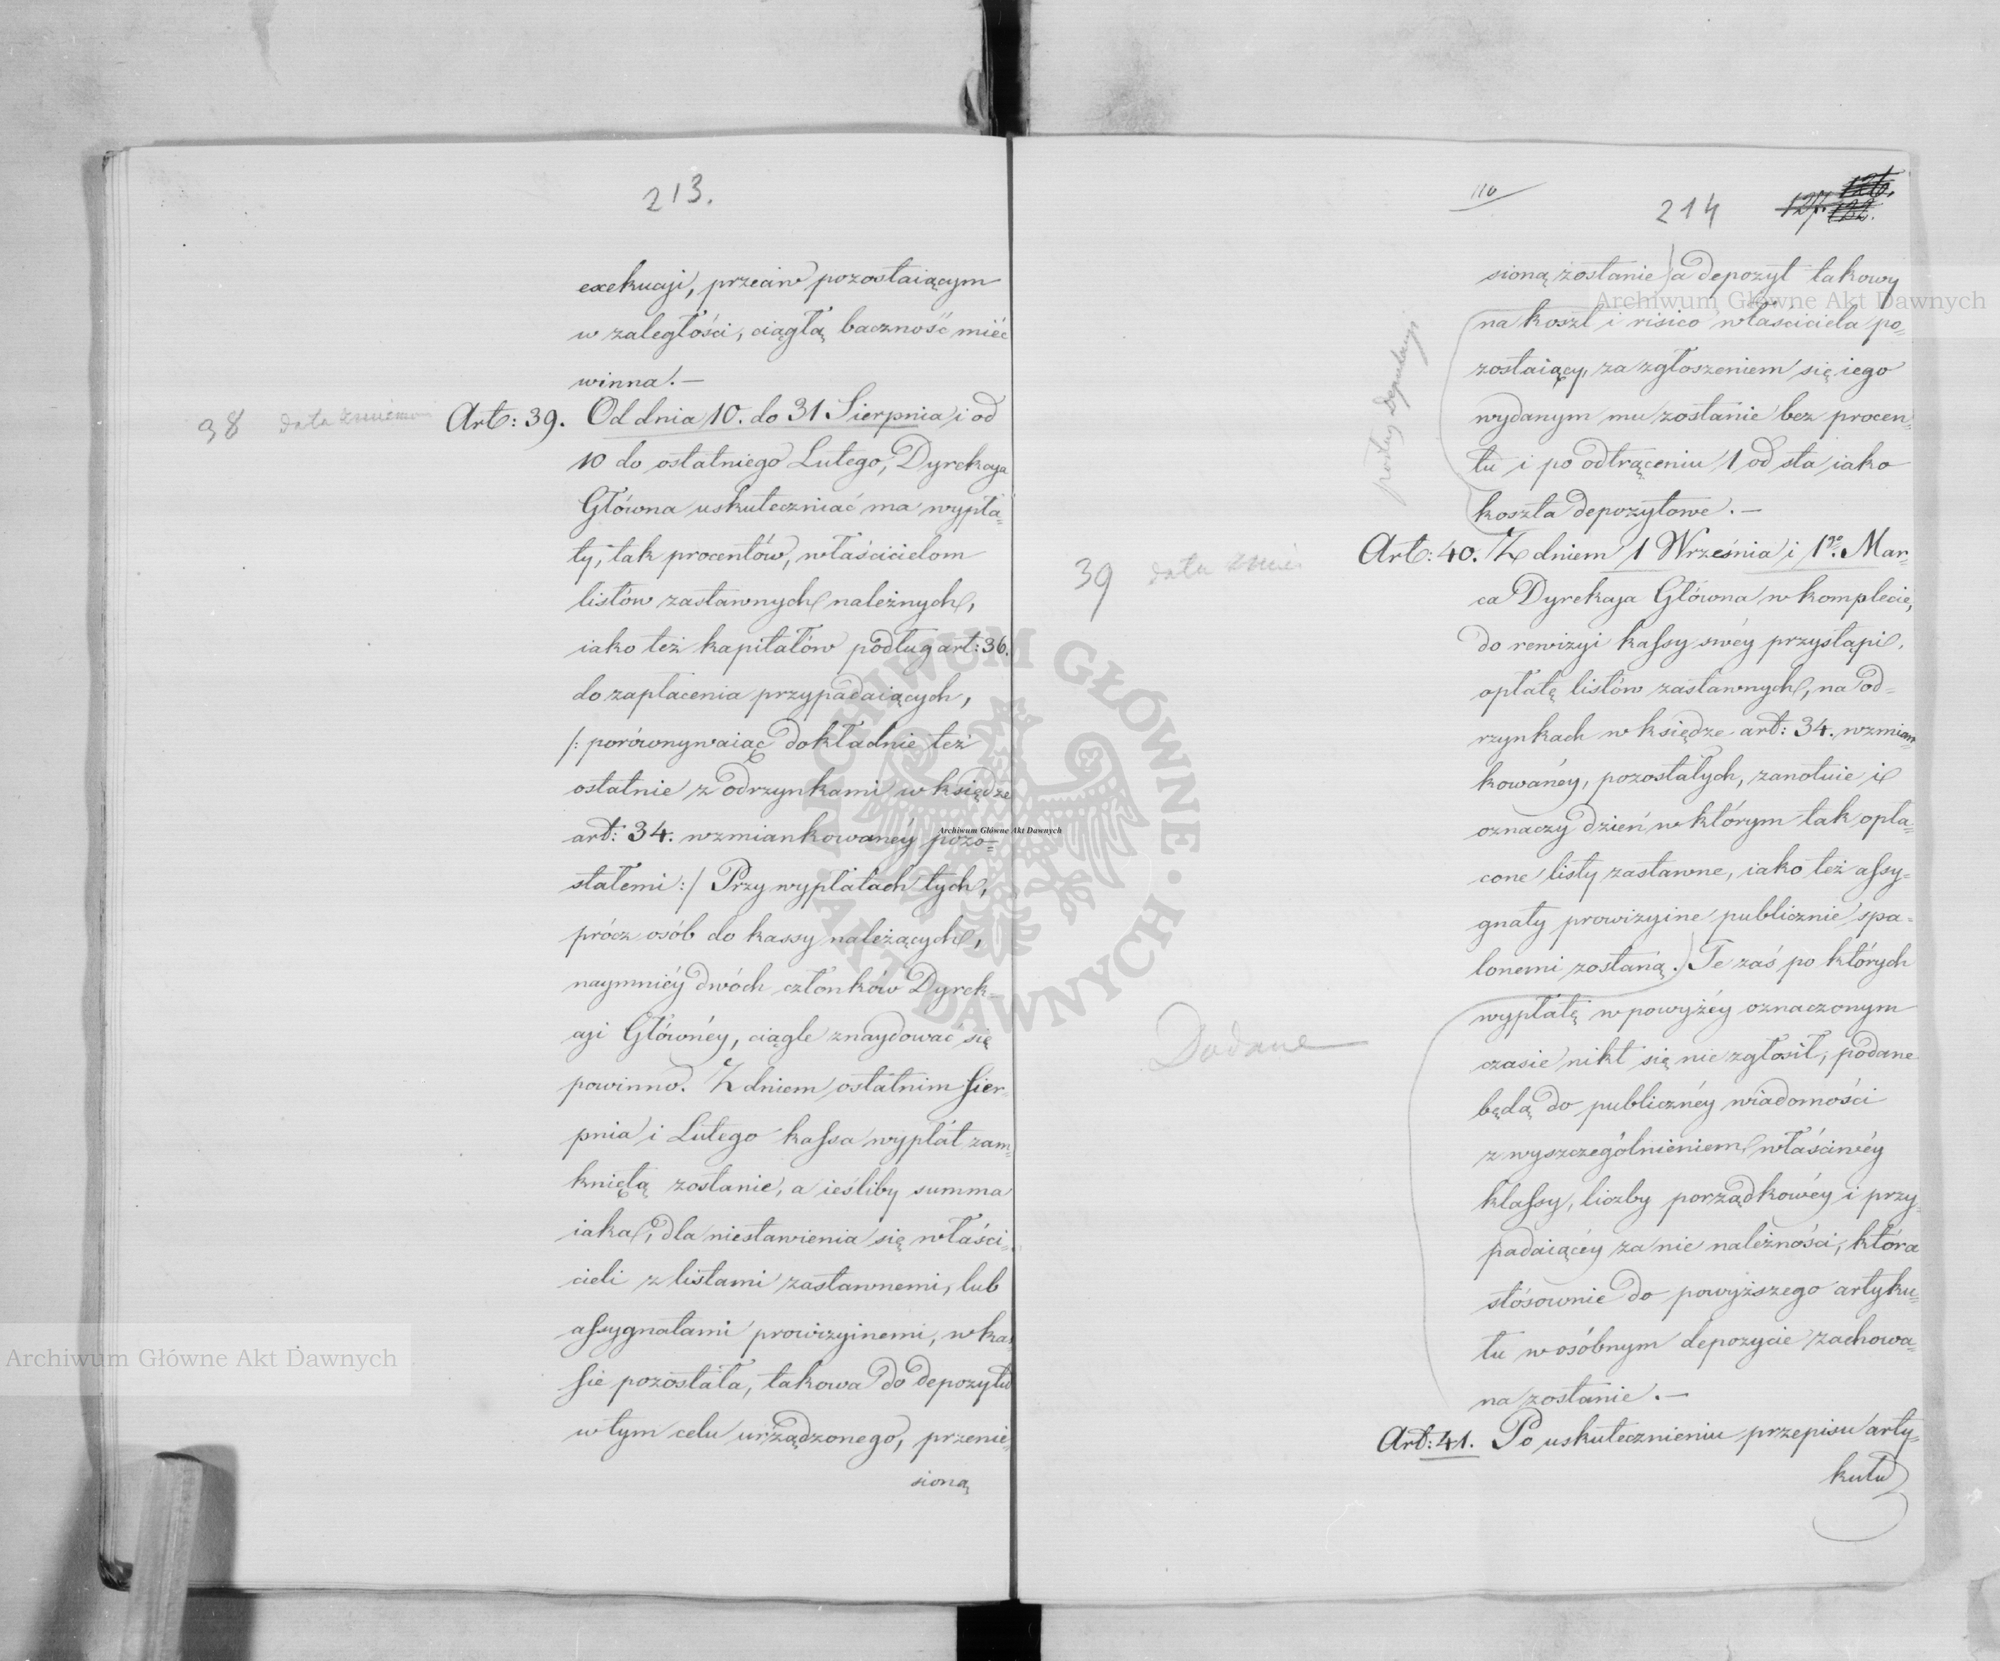 213.
exekucji, przeciw pozostaiącym
w zaległości, ciągłą baczność mieć
winna. —
38 data zmieniona
Art: 39. Od dnia 10. do 31 Sierpnia i od
10 do ostatniego Lutego, Dyrekcya
Główna uskuteczniać ma wypła=
ty, tak procentów, właścicielom
listów zastawnych należnych,
iako też kapitałów podług art: 36.
do zapłacenia przypadaiących,
/: porównywaiąc dokładnie też
ostatnie z odrzynkami w księdze
art: 34. wzmiankowanéy pozo=
stałemi :/ Przy wypłatach tych,
prócz osób do kassy należących,
naymniéy dwóch członków Dyrek=
cyi Głównéy, ciągle znaydować się
powinno. Z dniem ostatnim Sier=
pnia i Lutego kassa wypłat zam=
kniętą zostanie, a ieśliby summa
iaka, dla niestawienia się właści=
cieli z listami zastawnemi, lub
assygnatami prowizyinemi, w ka=
ssie pozostała, takowa do depozytu
w tym celu urządzonego, przenie=
sioną
110
214
127. 126.
132.
sioną zostanie) a depozyt takowy
na koszt i risico właściciela po=
zostaiący, za zgłoszeniem się iego
wydanym mu zostanie bez procen=
tu i po odtrąceniu 1 od sta iako
koszta depozytowe. —
podług Deputacyi
39 data zmien
Art: 40. Z dniem 1 Września i 1go Mar=
ca Dyrekcya Główna w komplecie,
do rewizyi kassy swéy przystąpi,
opłatę listów zastawnych, na od=
rzynkach w księdze art: 34. wzmian=
kowanéy, pozostałych, zanotuie i
oznaczy dzień w którym tak opła=
cone listy zastawne, iako też assy=
gnaty prowizyine publicznie spa=
lonemi zostaną.) Te zaś po których
wypłatę w powyżéy oznaczonym
Dodane
czasie nikt się nie zgłosił, podane
będą do publicznéy wiadomości
z wyszczególnieniem właściwéy
klassy, liczby porządkowéy i przy=
padaiącéy za nie należności, która
stósownie do powyższego artyku=
łu w osóbnym depozycie zachowa=
na zostanie. —
Art: 41. Po uskutecznieniu przepisu arty=
kułu
Archiwum Główne Akt Dawnych
Archiwum Główne Akt Dawnych
Archiwum Główne Akt Dawnych
ARCHIWUM GŁÓWNE · AKT DAWNYCH ·